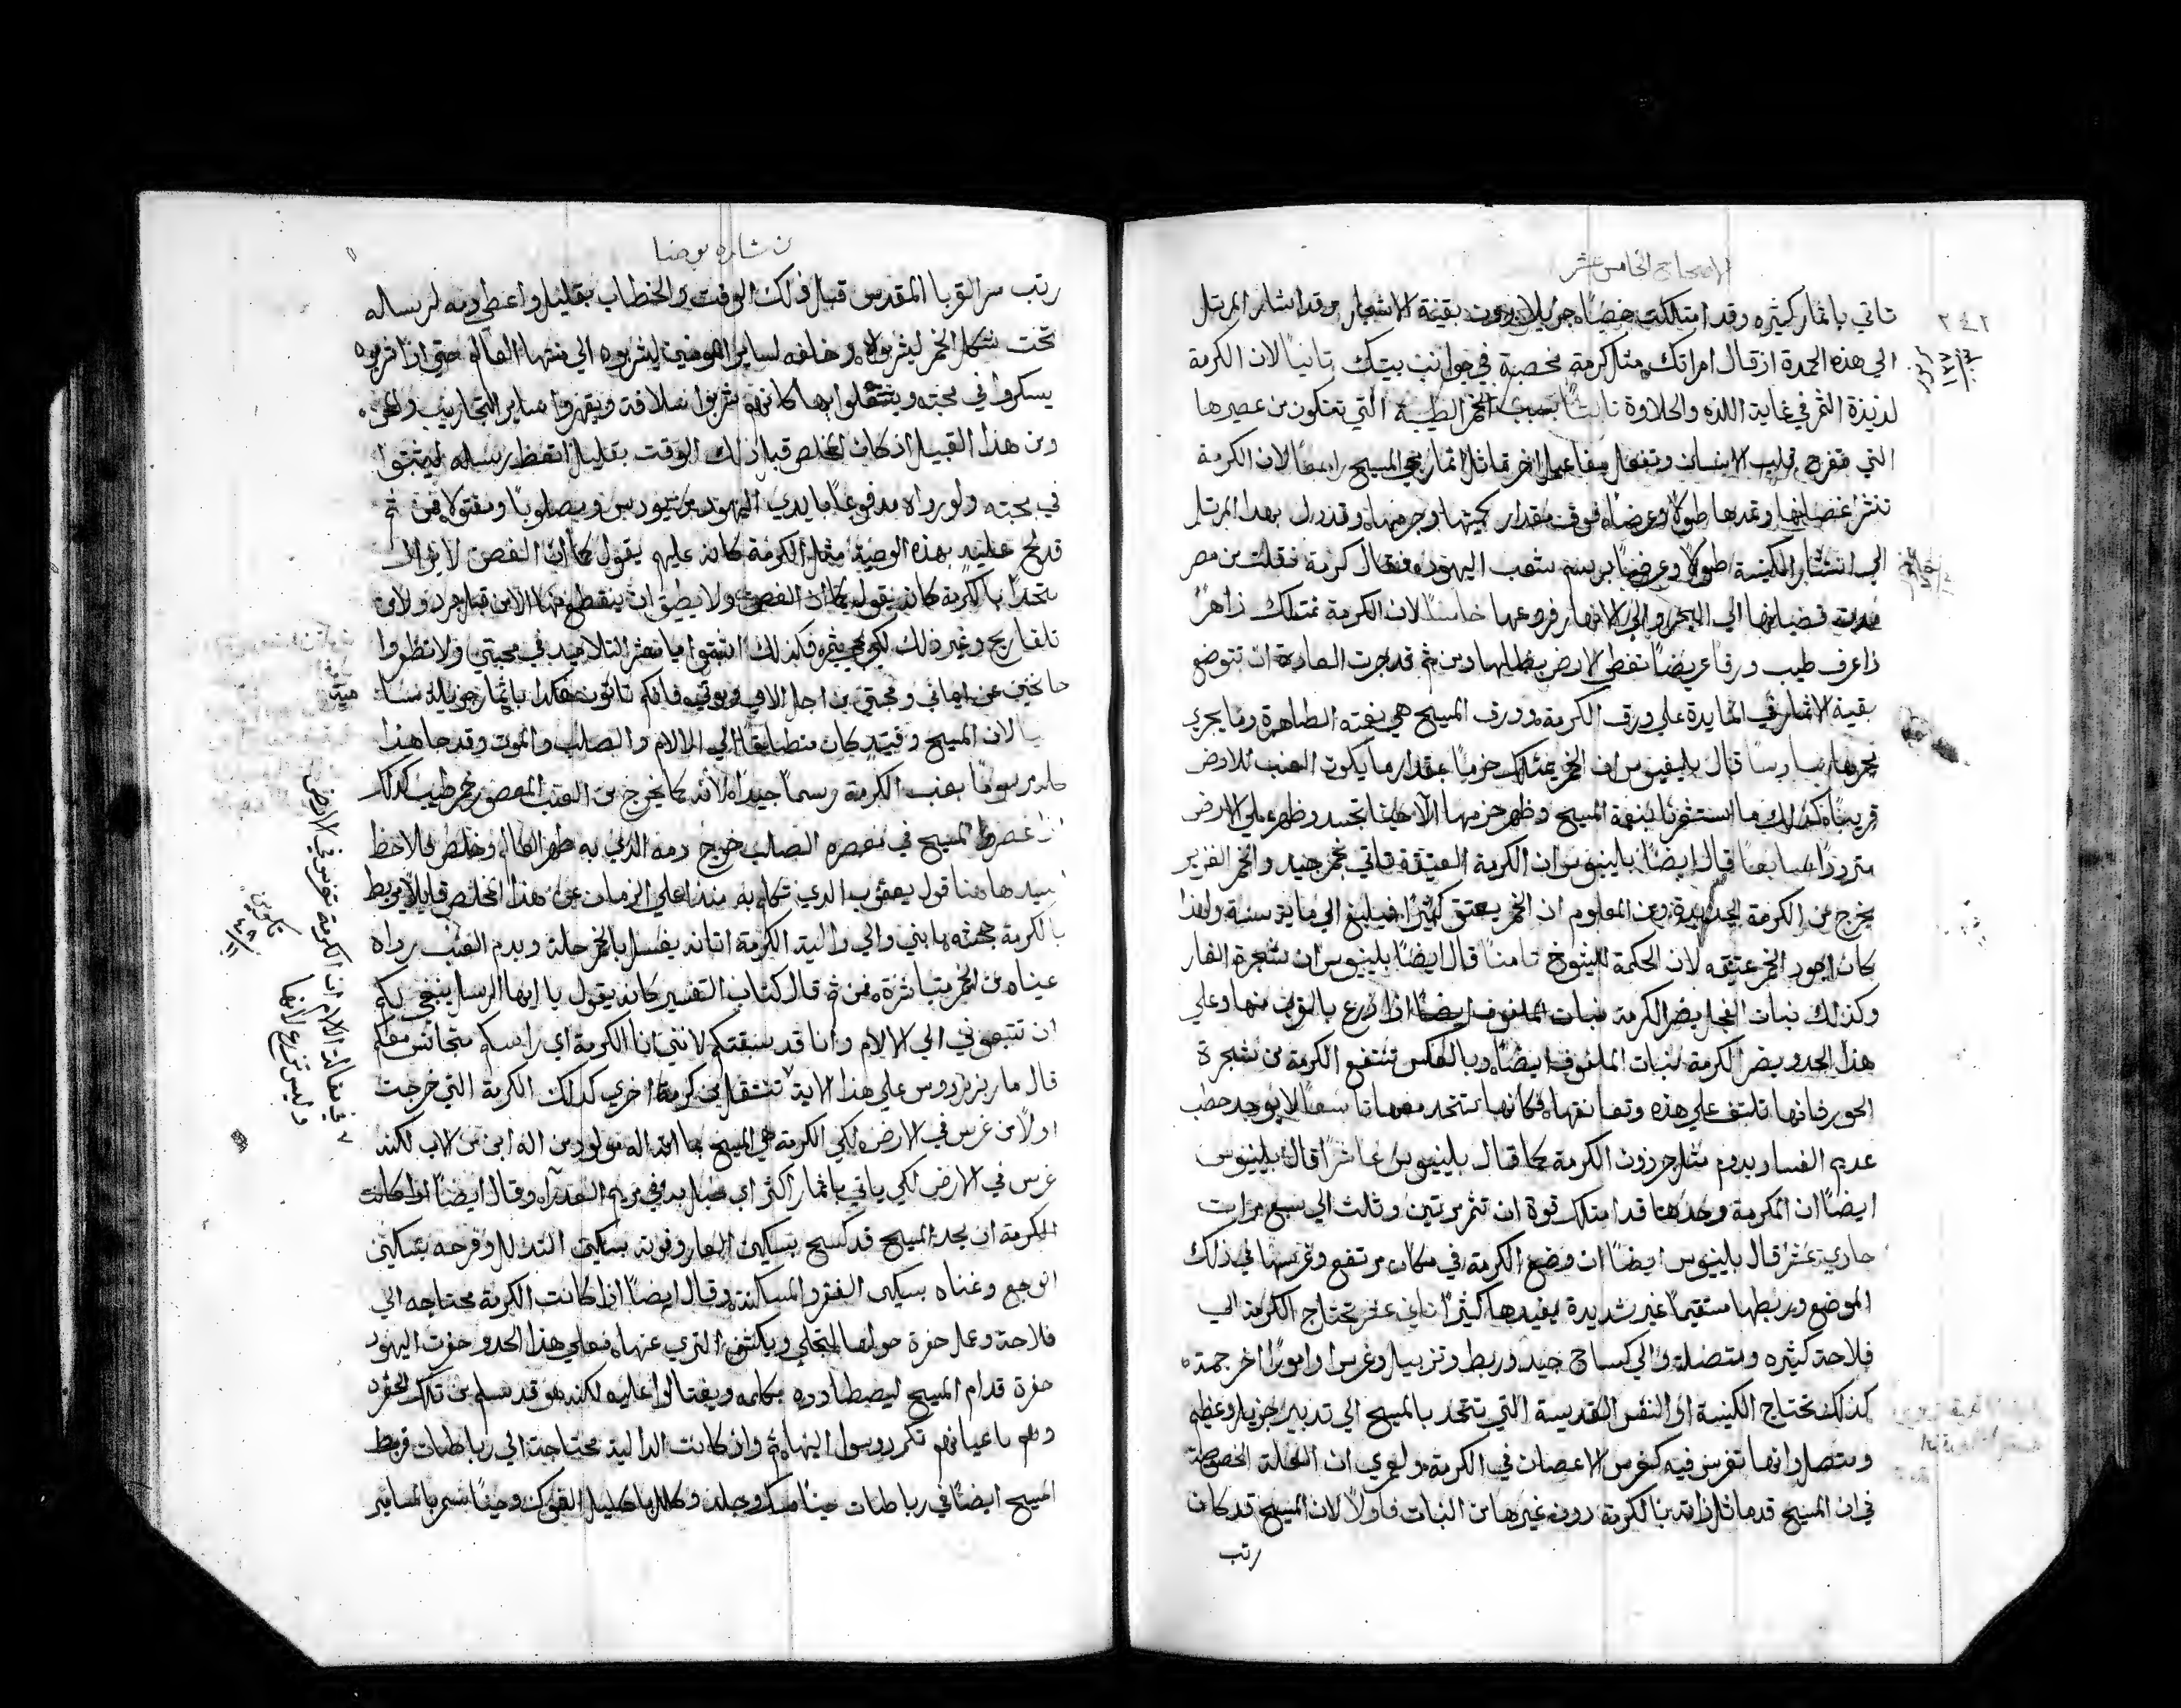 الاصحاح الخامس عشر
٢٤٢
تاتي باثمار كثيره وقد امتلكت خصبًا جزيلا دون بقية الاشجار وقد اشار المرتل
الي هذه الحمدة اذ قال امراتك مثل كرمة مخصبة في جوانب بيتك ثانيًا لان الكرمة
لذيذة الثمر في غاية اللذه والحلاوة ثالثًا بسبب الخمر الطيبة التي تتكون من عصيرها
التي تفرح قلب الانسان وتفعل مفاعيل اخر تماثل اثمار المسيح رابعًا لان الكرمة
تنثر اغصانها وتمدها طولًا وعرضًا فوق مقدار كميتها وجرمها وقد دل بهذا المرتل
الي انتشار الكنيسة طولًا وعرضًا برسم شعب اليهود فقال كرمة نقلت من مصر
مدت قضبانها الي البحر والي الانهار فروعها خامسًا لان الكرمة تمتلك زاهرًا
ذا عرف طيب ورقًا عريضًا تغطي الارض بظلها ومن ثم قد جرت العادة ان توضع
بقية الاثمار في المايدة علي ورق الكرمة وورق المسيح هي نعمته الطاهرة وما يجري
مجراها سادسًا قال بلينيوس ان الخمر يمتلك حزمًا بمقدار ما يكون العنب للارض
قريبًا كذلك ما استثمرنا بنعمة المسيح وظهر حزمها الا حينما تجسد وظهر علي الارض
مترددًا سابعًا قال ايضًا بلينيوس ان الكرمة العتيقة تاتي بخمر جيد والخمر الغزير
يخرج من الكرمة الجديدة ومن المعلوم ان الخمر يعتق كثيرًا فيبلغ الي ماية سنة ولهذا
كان اجود الخمر عتيقه لان الحكمة للشيوخ ثامنًا قال ايضًا بلينيوس ان شجرة الغار
وكذلك نبات الفجل يضر الكرمة نبات الملفوف ايضًا اذا زرع بالقرب منها وعلي
هذا الحد ويضر الكرمة لنبات الملفوف ايضًا وبالعكس تنتفع الكرمة من شجرة
الحور فانها تلتف علي هذه وتعانقها فكانها تتحد معها تاسعًا لا يوجد حطب
عديم الفساد يدوم مثل جرزون الكرمة كما قال بلينيوس عاشرًا قال بلينيوس
ايضًا ان الكرمة وحدها قد امتلك قوة ان تثمر مرتين وثلث الي سبع مرات
حادي عشر قال بلينيوس ايضًا ان وضع الكرمة في مكان مرتفع وغرسها في ذلك
الموضع وربطها مستقيمًا غير شديدة يفيدها كثيرًا ثاني عشر تحتاج الكرمة الي
فلاحة كثيره ومتصلة والي كساح جيد وربط وتزبيل وغرس وامورًا اخر جمة
كذلك تحتاج الكنيسة او النفس القديسة التي تتحد بالمسيح الي تدبير جزيل وعظيم
ومتصل وانها تغرس فيه كغرس الاغصان في الكرمة ولعمري ان العلة الخصوصية
في ان المسيح قد ماثل ذاته بالكرمة دون غيرها من النبات فاولًا لان المسيح قد كان
رتب
بشارة يوحنا
رتب سر القربان المقدس قبل ذلك الوقت والخطاب بقليل واعطي دمه لرسله
تحت شكل الخمر ليشربوه وخلفه لساير المومنين ليشربوه الي منتها العالم حتي اذا شربوه
يسكروا في محبته ويشتعلوا بها كانهم شربوا سلافة ويقهروا ساير التجاريب والمحن
ومن هذا القبيل اذ كان المخلص قبل ذلك الوقت بقليل اتعظ رسله ليثبتوا
في محبته ولو رواه مدفوعًا بايدي اليهود ومصلوبًا ومقتولا فمن ثم
قد لح عليهم بهذه الوصية مثل الكرمة كانه عليهم يقول كما ان الغصن لا يزال
متحدًا بالكرمة كانه يقول كما ان الغصن ولا يطيق ان ينقطع منها لا من قبل جرد ولا من
تلفا ريح وغير ذلك لكي يثمر فكذلك اثبتوا يا معشر التلاميذ في محبتي ولا تظهروا
خايبين عن ايماني ومحبتي من اجل الامي وموتي فانكم تاتون هكذا باثمار جزيلة
لان المسيح وقتيذ كان منطلقًا الي الالام والصلب والموت وقد جا هذا
مرسومًا بعنب الكرمة رسمًا جيدًا لانه كما يخرج من العنب المعصور خمر طيب كذلك
اذا عصر المسيح في معصرة الصلب خرج دمه الذي به طهر العالم وخلص فالاحظ
ها هنا قول يعقوب الذي تكلم به منذ اعلي الزمان عن هذا المخلص قايلًا يربط
بالكرمة جحشه يا بني والي دالية الكرمة اتانه يغسل بالخمر حلة وبدم العنب رداه
عيناه من الخمر متباشرة فمن ثم قال كتاب التفسير كانه يقول يا ايها الرسل ينبغي لكم
ان تتبعوني الي الالام وانا قد سبقتكم لانني انا الكرمة اي راسكم متجانس معكم
قال مار برنردوس علي هذا الاية لا تنتقل من كرمة اخري كذلك الكرمة التي خرجت
اولًا من غرس في الارض لكي الكرمة هي المسيح بما انه اله مولود من اله ابن من الاب لكنه
غرس في الارض لكي ياتي باثمار اكثر اي حبل به في مريم العذرآ وقال ايضًا اذا كانت
الكرمة ان مجد المسيح قد كسح بسكين العار وقوته بسكين التذلل وفرحه بسكين
الوجع وغناه بسكين الفقر والمسكنة وقال ايضًا اذا كانت الكرمة محتاجه الي
فلاحة وعمل حفرة حولها لتجلي ويكشف الثري عنها فعلي هذا الحد وحفرت اليهود
حفرة قدام المسيح ليصطادوه بكلمه ويغتالوا عليه لكنه هو قد سلم من تلك الحفره
وهم باعيانهم تكردسوا اليها ثم وان كانت الدالية محتاجة الي رباطات فربط
المسيح ايضًا في رباطات حينًا مسك وجلد وكلل باكليل الشوك وحينًا سمر بالمسامير
في مقالة الالام ان الكرمة تغرس في الارض
وليس تزرع لانها
تكوين
٤٩
١١